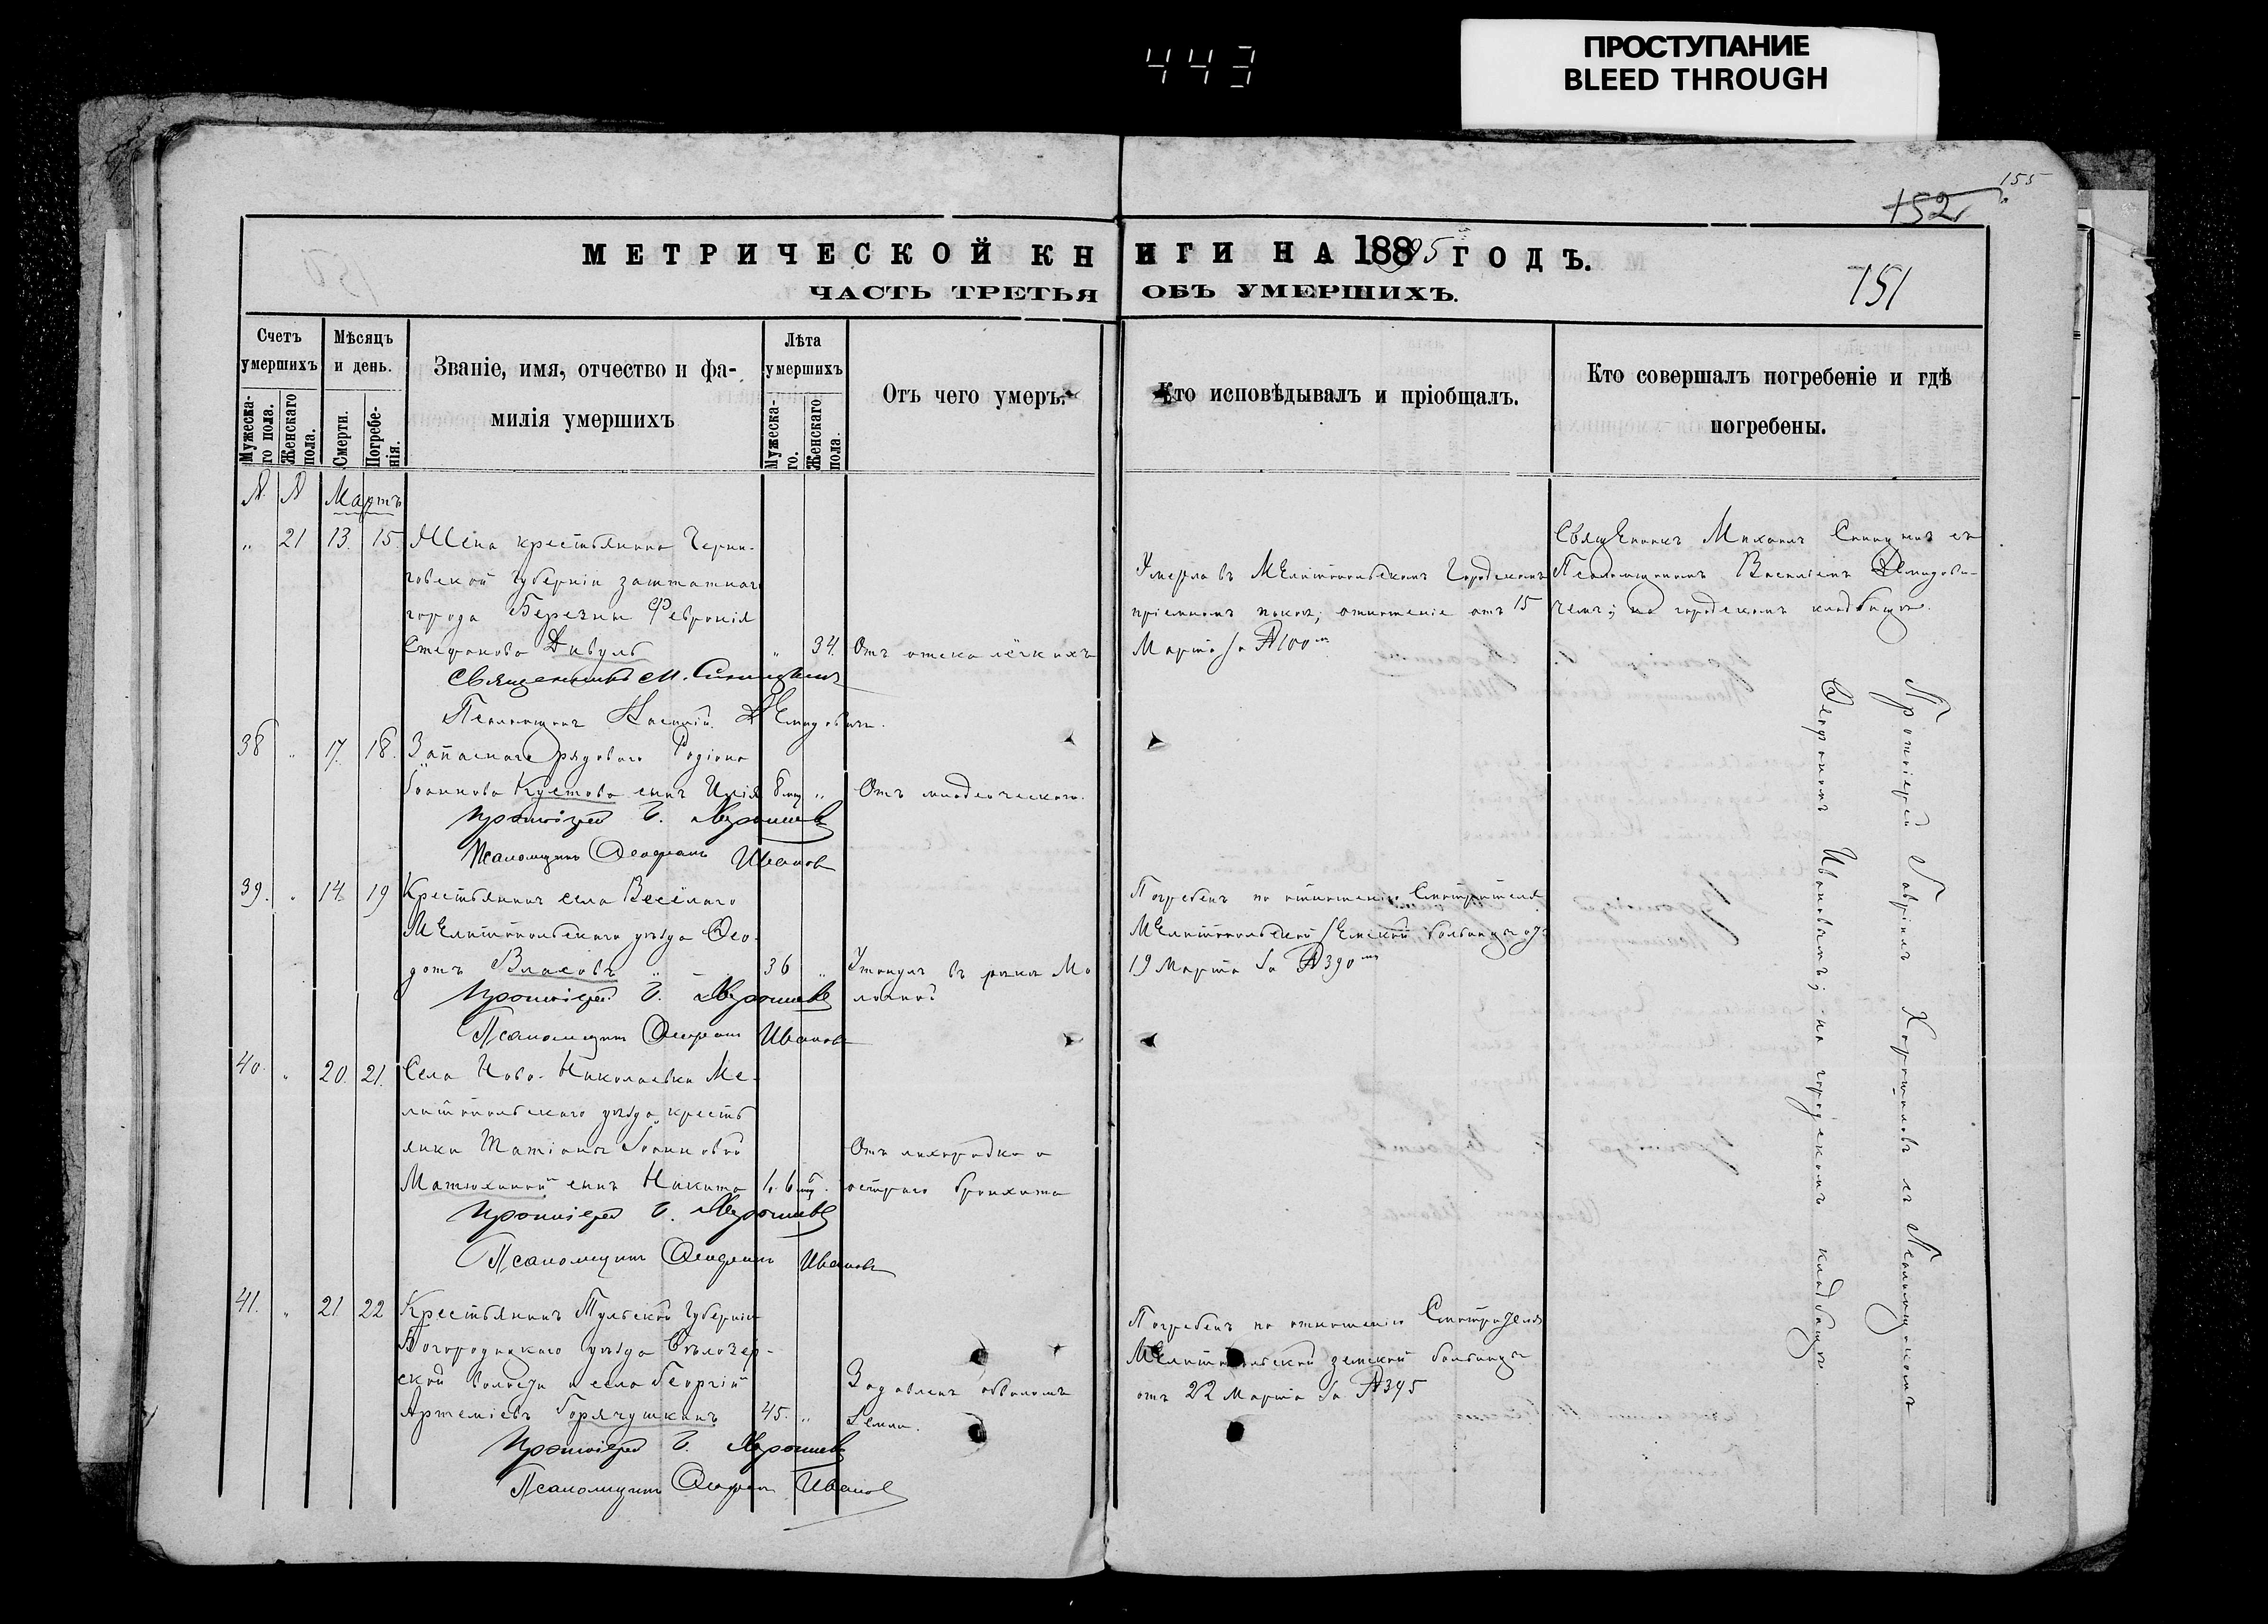 443
ПРОСТУПАНИЕ
BLEED THROUGH
155
152
МЕТРИЧЕСКОЙ КНИГИ НА 1895 ГОДЪ.
151
ЧАСТЬ ТРЕТЬЯ ОБЪ УМЕРШИХЪ.
Счетъ умершихъ
Мужеска-го пола.
Женскаго пола.
Мѣсяцъ и день.
Смерти.
Погребе-нія.
Званіе, имя, отчество и фа-
милія умершихъ
Лѣта умершихъ
Мужеска-го.
Женскаго пола.
Отъ чего умеръ.
Кто исповѣдывалъ и пріобщалъ.
Кто совершалъ погребеніе и гдѣ
погребены.
№ № Мартъ
„ 21 13. 15. Жена крестьянина Черни-
говской губерніи заштатнаго
города Березны Феврония
Стефанова Дивуль „ 34. Отъ отека лёгкихъ
Священникъ М. Синицынъ
Псаломщикъ Василій Демидовичъ.
Умерла въ Мелитопольскомъ Городскомъ
пріемномъ покоѣ; отношеніе отъ 15
Марта за № 100
Священникъ Михаилъ Синицынъ съ
Псаломщикомъ Василіемъ Демидови-
чемъ; на городскомъ кладбищѣ.
38 „ 17. 18. Запаснаго рядоваго Родіона
Іоаннова Кустова сынъ Илія 8 мц „ Отъ младенческаго.
Протоіерей Г.
Псаломщикъ Феофанъ Ивановъ
39. „ 14. 19 Крестьянинъ села Весёлаго
Мелитопольскаго уѣзда Фео-
дотъ Власовъ 36 „ Утонулъ въ рѣкѣ Мо
лочной
Протоіерей Г.
Псаломщикъ Феофанъ Ивановъ
Погребенъ по отношенію Смотрителя
Мелитопольской Земской больницы отъ
19 Марта за № 390
40. „ 20. 21. Села Ново-Николаевки Ме-
литопольскаго уѣзда кресть
янки Татіаны Іоанновой
Матюхиной сынъ Никита 1 г. 6 мц. Отъ лихорадки и
остраго бронхита
Протоіерей Г.
Псаломщикъ Феофанъ Ивановъ
41. „ 21. 22 Крестьянинъ Тульской губерніи
Богородицкаго уѣзда
ской волости и села Георгій
Артеміевъ Горячушкинъ 45. „ Задавленъ обваломъ
земли.
Протоіерей Г.
Псаломщикъ Феофанъ Ивановъ
Погребенъ по отношенію Смотрителя
Мелитопольской земской больницы
отъ 22 Марта за № 395
Протоіерей Гавріилъ съ Псаломщикомъ
Феофаномъ Ивановымъ; на городскомъ кладбищѣ.